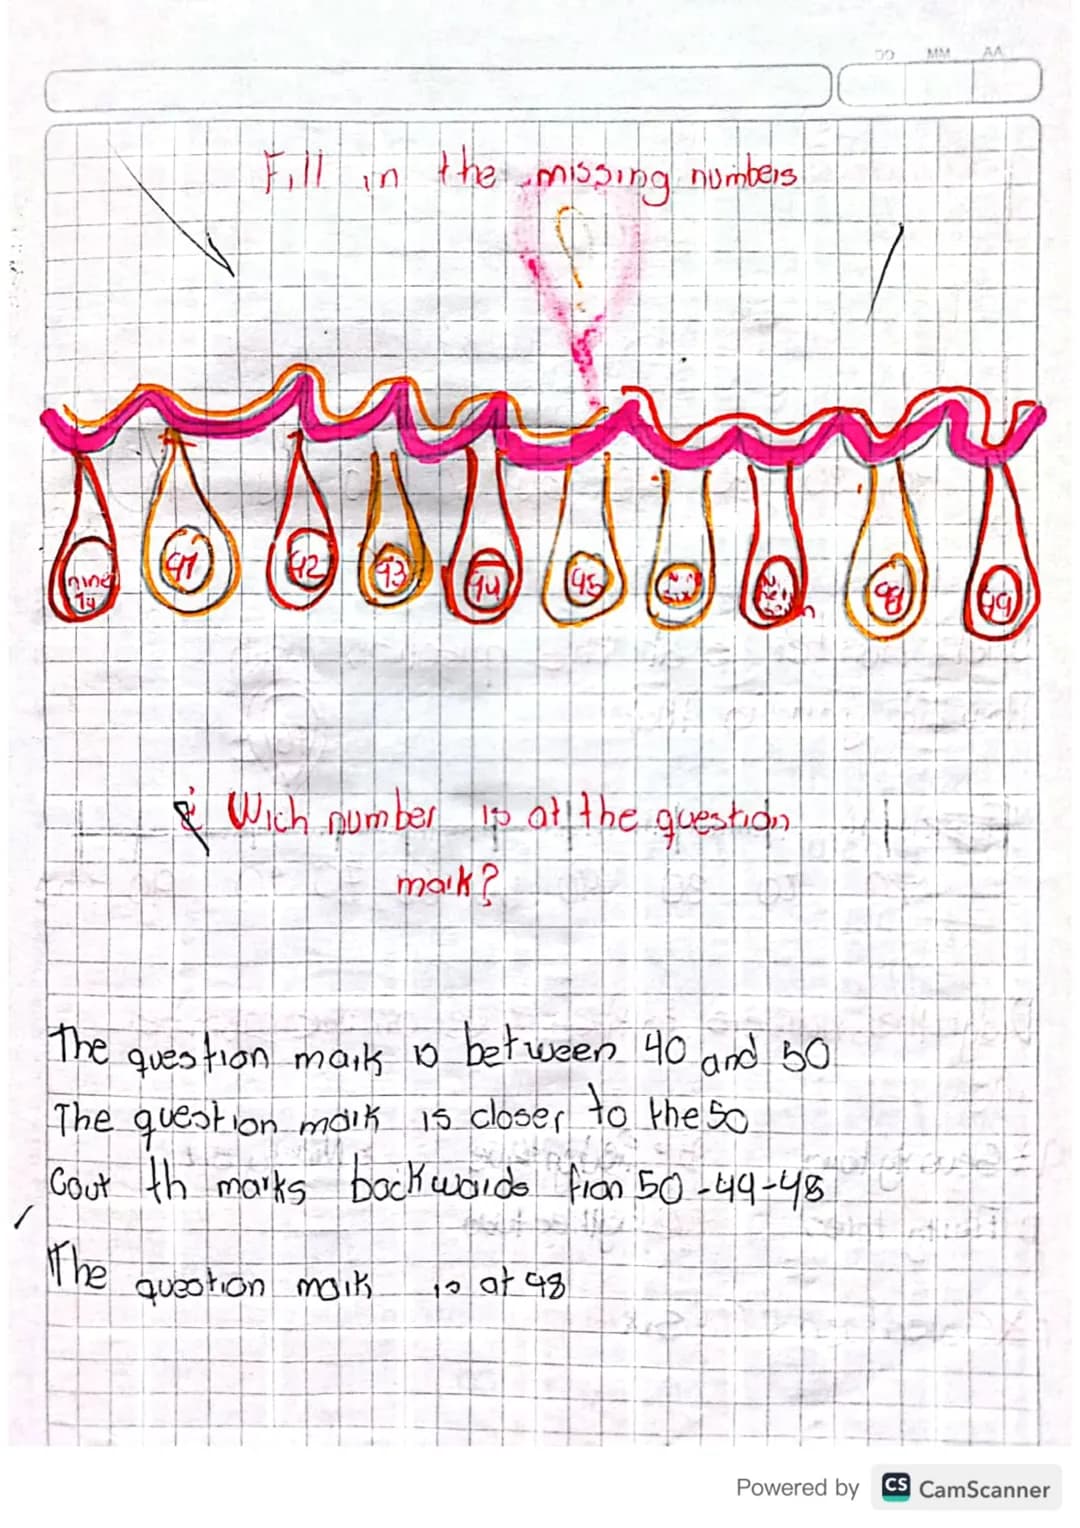 DD MM AA
Fill in the missing numbers
?
nine
ty 91 92 93 94 95 98 99
¿ Wich number is at the question
mark?
The question mark is between 40 and 50
The question mark is closer to the 50
Cout th marks backwards fron 50-49-48
The question mark is at 48
Powered by CS CamScanner